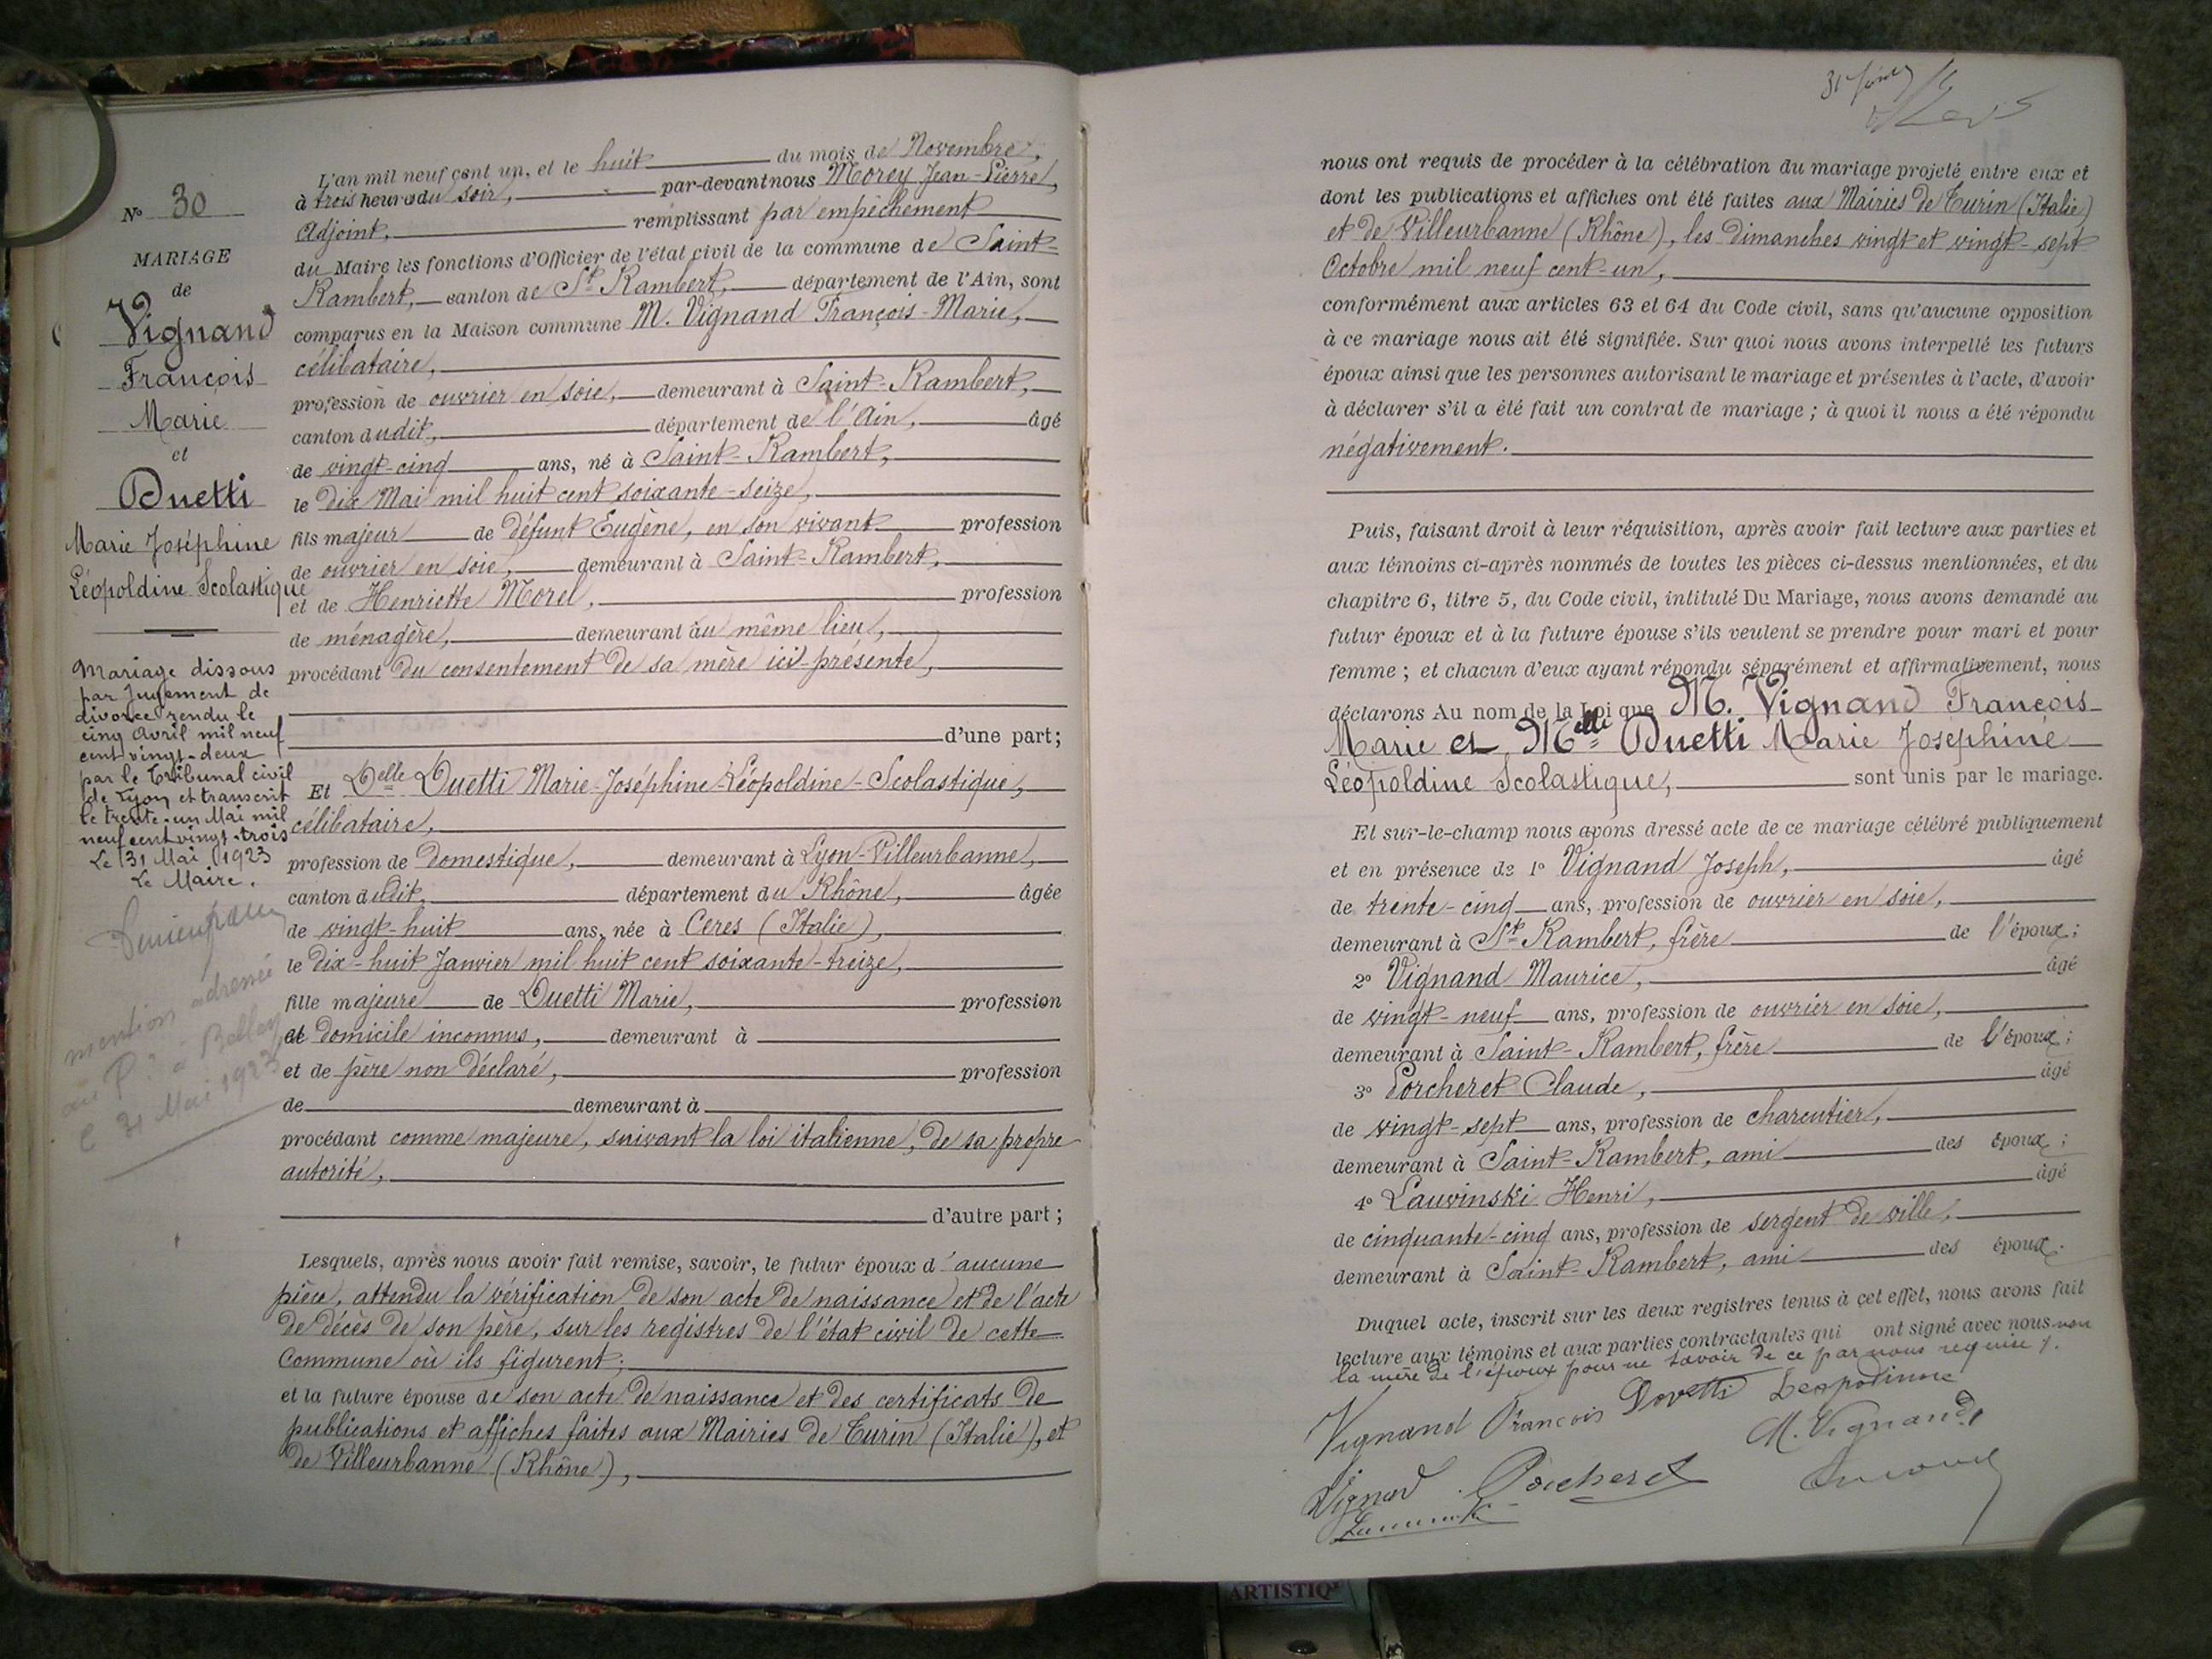 N° 30
MARIAGE
de
Vignand
François
Marie
et
Duetti
Marie Joséphine
Léopoldine Scolastique
Mariage dissous
par Jugement de
divorce rendu le
cinq Avril mil neuf
cent vingt-deux
par le Tribunal civil
de Lyon et transcrit
le trente-un Mai mil
neuf cent vingt-trois
Le 31 Mai 1923
Le Maire.
mention adressée
au P. à Belley
31 Mai 1923
L'an mil neuf cent un, et le huit du mois de Novembre,
à trois heures du soir, par-devant nous Morey Jean-Pierre,
Adjoint, remplissant par empêchement
du Maire les fonctions d'Officier de l'état civil de la commune de Saint-
Rambert, canton de St Rambert, département de l'Ain, sont
comparus en la Maison commune M. Vignand François-Marie,
célibataire,
profession de ouvrier en soie, demeurant à Saint-Rambert,
canton dudit, département de l'Ain, âgé
de vingt-cinq ans, né à Saint-Rambert,
le dix Mai mil huit cent soixante-seize,
fils majeur de défunt Eugène, en son vivant profession
de ouvrier en soie, demeurant à Saint-Rambert,
et de Henriette Morel, profession
de ménagère, demeurant au même lieu,
procédant du consentement de sa mère ici présente,
d'une part;
Et Delle Duetti Marie-Joséphine-Léopoldine-Scolastique,
célibataire,
profession de domestique, demeurant à Lyon-Villeurbanne,
canton dudit, département du Rhône, âgée
de vingt-huit ans, née à Ceres (Italie),
le dix-huit Janvier mil huit cent soixante-treize,
fille majeure de Duetti Marie, profession
et domicile inconnus, demeurant à
et de père non déclaré, profession
de demeurant à
procédant comme majeure, suivant la loi italienne, de sa propre
autorité,
d'autre part;
Lesquels, après nous avoir fait remise, savoir, le futur époux d'aucune
pièce, attendu la vérification de son acte de naissance et de l'acte
de décès de son père, sur les registres de l'état civil de cette
Commune où ils figurent;
et la future épouse de son acte de naissance et des certificats de
publications et affiches faites aux Mairies de Turin (Italie), et
de Villeurbanne (Rhône),
nous ont requis de procéder à la célébration du mariage projeté entre eux et
dont les publications et affiches ont été faites aux Mairies de Turin (Italie)
et de Villeurbanne (Rhône), les dimanches vingt et vingt-sept
Octobre mil neuf cent-un,
conformément aux articles 63 et 64 du Code civil, sans qu'aucune opposition
à ce mariage nous ait été signifiée. Sur quoi nous avons interpellé les futurs
époux ainsi que les personnes autorisant le mariage et présentes à l'acte, d'avoir
à déclarer s'il a été fait un contrat de mariage; à quoi il nous a été répondu
négativement.
Puis, faisant droit à leur réquisition, après avoir fait lecture aux parties et
aux témoins ci-après nommés de toutes les pièces ci-dessus mentionnées, et du
chapitre 6, titre 5, du Code civil, intitulé Du Mariage, nous avons demandé au
futur époux et à la future épouse s'ils veulent se prendre pour mari et pour
femme; et chacun d'eux ayant répondu séparément et affirmativement, nous
déclarons Au nom de la Loi que M. Vignand François-
Marie et Melle Duetti Marie Joséphine
Léopoldine Scolastique, sont unis par le mariage.
Et sur-le-champ nous avons dressé acte de ce mariage célébré publiquement
et en présence de 1° Vignand Joseph, âgé
de trente-cinq ans, profession de ouvrier en soie,
demeurant à St Rambert, frère de l'époux;
2° Vignand Maurice, âgé
de vingt-neuf ans, profession de ouvrier en soie,
demeurant à Saint-Rambert, frère de l'époux;
3° Porcheret Claude, âgé
de vingt-sept ans, profession de charcutier,
demeurant à Saint-Rambert, ami des époux;
4° Lauwinski Henri, âgé
de cinquante-cinq ans, profession de sergent de ville,
demeurant à Saint-Rambert, ami des époux.
Duquel acte, inscrit sur les deux registres tenus à cet effet, nous avons fait
lecture aux témoins et aux parties contractantes qui ont signé avec nous non
la mère de l'époux pour ne savoir de ce par nous requise.
Vignand François Dovetti Leopoldinne
M. Vignand
Vignand Porcheret
ARTISTIQ